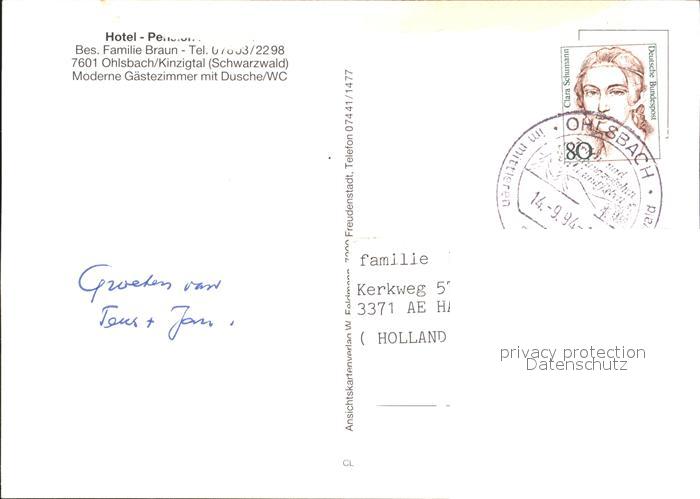 Hotel -
Bes. Familie Braun - Tel. 07803/2298
7601 Ohlsbach/Kinzigtal (Schwarzwald)
Moderne Gästezimmer mit Dusche/WC
Groeten van
Teus + Jan.
Ansichtskartenverlag W. Feldmann, Freudenstadt, Telefon 07441/1477
CL
Clara Schumann
Deutsche Bundespost
80
im mittleren • OHLSBACH •
14.-9.94-
familie
Kerkweg
3371 AE
( HOLLAND
privacy protection
Datenschutz